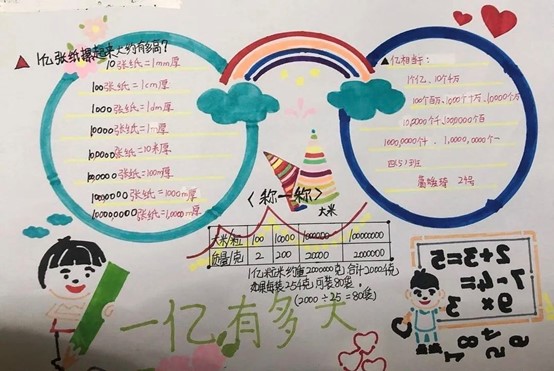 1亿张纸摞起来大约有多高?
10张纸=1mm厚
100张纸=1cm厚
1000张纸=1dm厚
10000张纸=1m厚
100000张纸=10米厚
1000000张纸=100m厚
10000000张纸=1000m厚
100000000张纸=10000m厚
1亿相当于:
1个亿、10个千万
100个百万、1000个十万、10000个万
四5)班
2号
〈称一称〉
大米
大米/粒 100 10000 1000000 100000000
质量/克 2 200 20000 2000000
1亿粒米约重2000000克 合计2000千克
如果每袋25千克可装80袋。
(2000÷25=80袋)
一亿有多大
2+3=5
7-4=
9×3